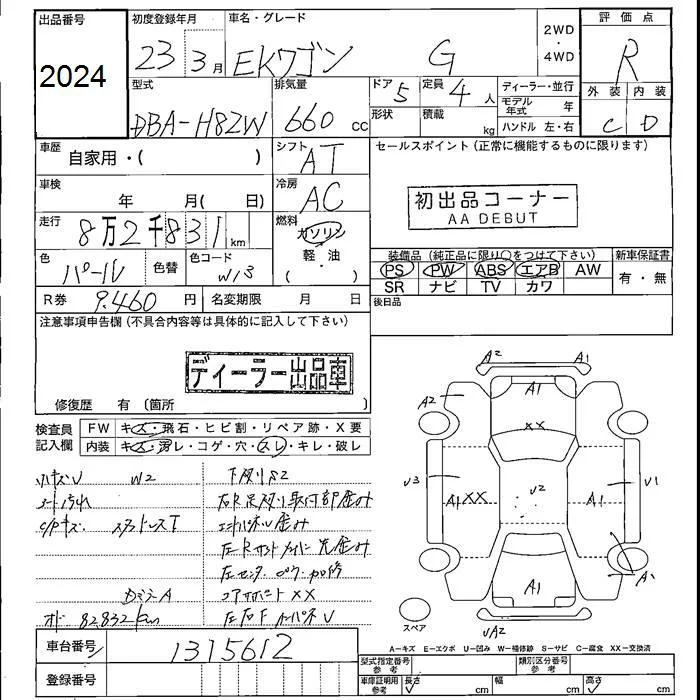 出品番号
2024
初度登録年月
23 3月
車名・グレード
EKワゴン G
2WD
・
4WD
評価点
R
型式
DBA-H82W
排気量
660 cc
ドア
5
定員
4人
形状
積載
kg
ディーラー・並行
モデル年式 年
ハンドル 左・右
外装 内装
C D
車歴
自家用・( )
シフト
AT
セールスポイント (正常に機能するものに限ります)
初出品コーナー
AA DEBUT
車検
年 月( 日)
冷房
AC
走行
8万2千831km
燃料
ガソリン
軽・油
・
( )
色
パール
色替
色コード
W13
装備品 (純正品に限り○をつけて下さい)
PS PW ABS エアB AW
SR ナビ TV カワ
新車保証書
有・無
R券 9.460 円
名変期限 月 日
後日品
注意事項申告欄 (不具合内容等は具体的に記入して下さい)
ディーラー出品車
修復歴 有 (箇所 )
検査員記入欄
FW キズ・飛石・ヒビ割・リペア跡・X要
内装 キズ・汚レ・コゲ・穴・スレ・キレ・破レ
小キズU W2
シート汚れ
スタットレスT
コアサポートXX
82832km
A2 A1
A2 A1
XX
U3 A1 XX U2 A1 U1
A1
A1
UA2
スペア
A-キズ E-エクボ U-凹み W-補修跡 S-サビ C-腐食 XX-交換済
車台番号
1315612
登録番号
型式指定番号
参考
類別区分番号
参考
車庫証明用
参考
長さ cm
幅 cm
高さ cm